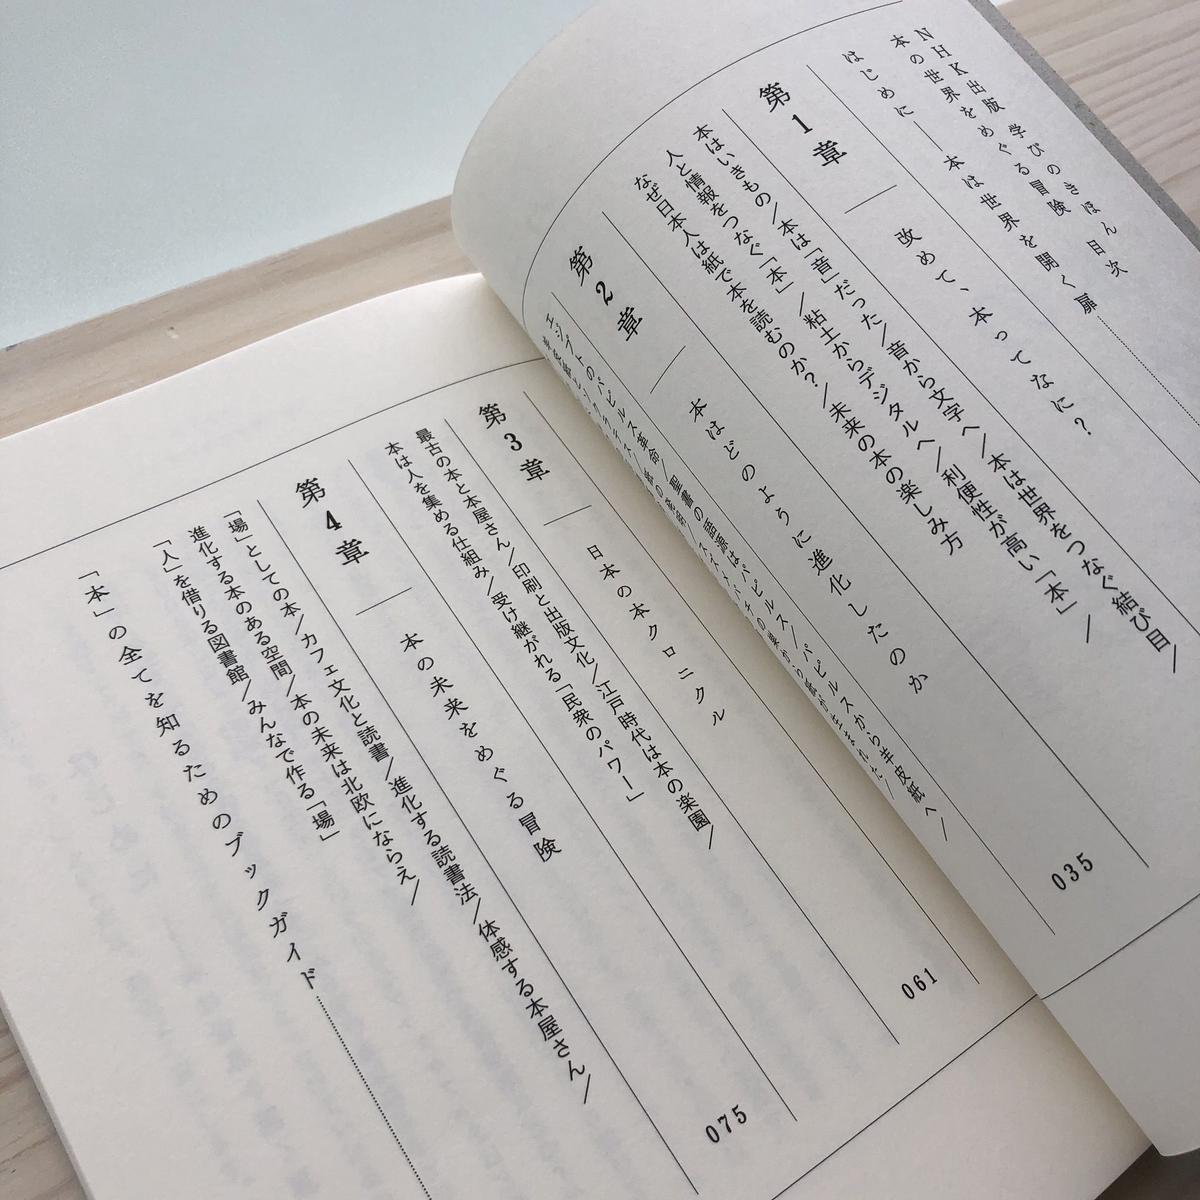 NHK出版 学びのきほん 目次
本の世界をめぐる冒険
はじめに──本は世界を開く扉
第1章 改めて、本ってなに?
本はいきもの/本は「音」だった/音から文字へ/本は世界をつなぐ結び目/
人と情報をつなぐ「本」/粘土からデジタルへ/利便性が高い「本」/
なぜ日本人は紙で本を読むのか?/未来の本の楽しみ方
第2章 本はどのように進化したのか
035
エジプトのパピルス革命/聖書の語源はパピルス/パピルスから羊皮紙へ/
第3章 日本の本クロニクル
061
最古の本と本屋さん/印刷と出版文化/江戸時代は本の楽園/
本は人を集める仕組み/受け継がれる「民衆のパワー」
第4章 本の未来をめぐる冒険
075
「場」としての本/カフェ文化と読書/進化する読書法/体感する本屋さん/
進化する本のある空間/本の未来は北欧にならえ/
「人」を借りる図書館/みんなで作る「場」
「本」の全てを知るためのブックガイド